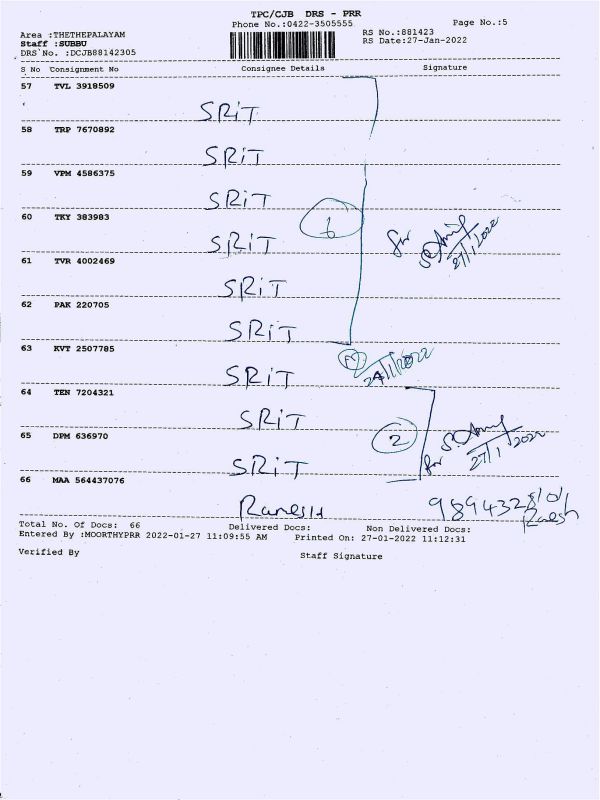 TPC/CJB DRS - PRR
Phone No.:0422-3505555
Page No.:5
Area :THETHEPALAYAM
RS No.:881423
Staff :SUBBU
RS Date:27-Jan-2022
DRS`No. :DCJB88142305
S No Consignment No Consignee Details Signature
57 TVL 3918509
SRiT
58 TRP 7670892
SRiT
59 VPM 4586375
SRiT
60 TKY 383983
6
SRiT
27/1/2022
61 TVR 4002469
SRiT
62 PAK 220705
SRiT
63 KVT 2507785
SRiT
24/1/2022
64 TEN 7204321
SRiT
2
65 DPM 636970
27/1/2022
SRiT
66 MAA 564437076
Total No. Of Docs: 66 Delivered Docs: Non Delivered Docs:
Entered By :MOORTHYPRR 2022-01-27 11:09:55 AM Printed On: 27-01-2022 11:12:31
Verified By Staff Signature